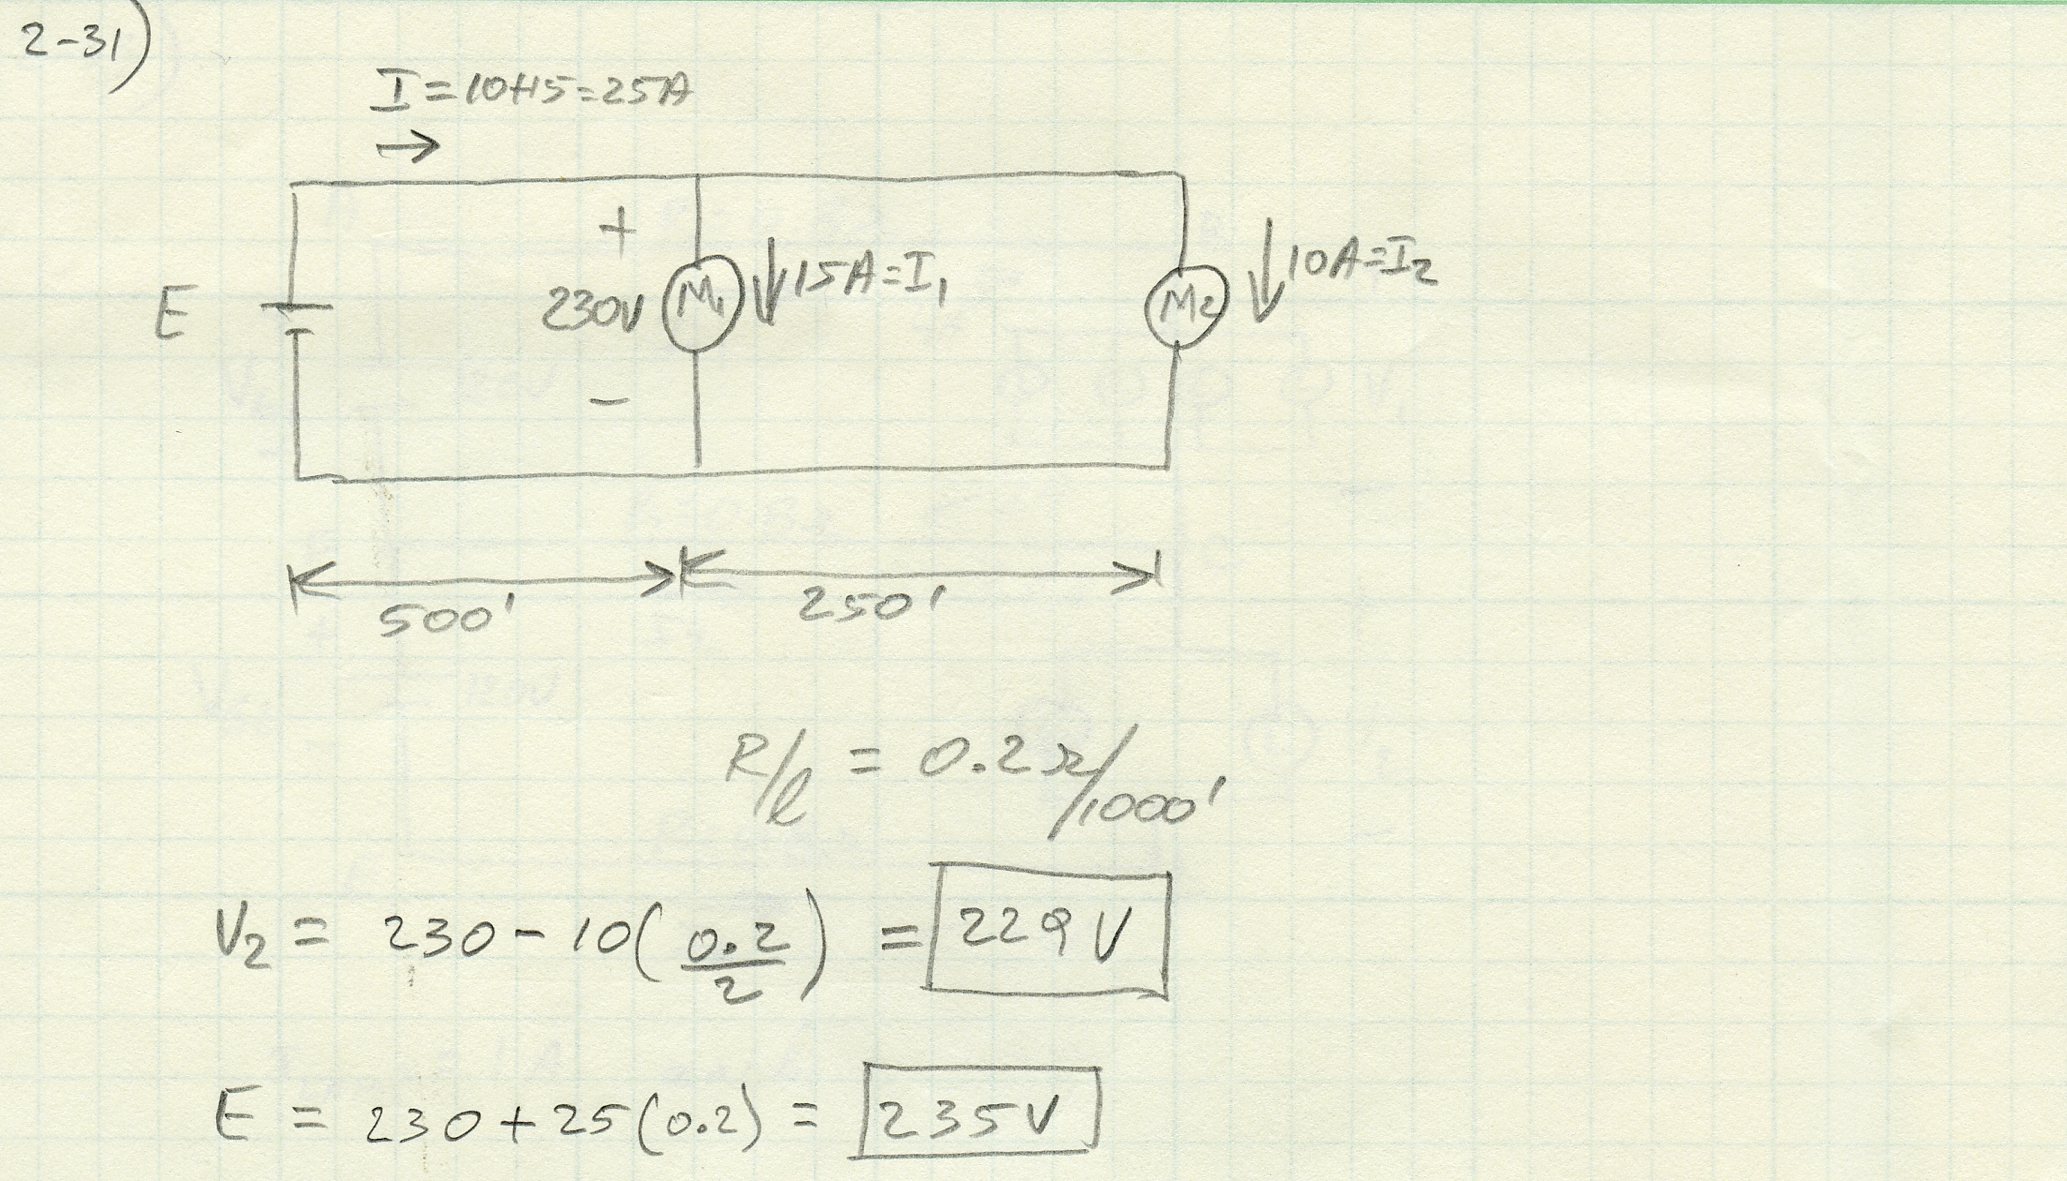 2-31)
I = 10+15 = 25A
+
E
230V
M1
15A = I1
M2
10A = I2
-
500'
250'
R/l = 0.2Ω/1000'
V2 = 230 - 10(0.2/2) = 229V
E = 230 + 25(0.2) = 235V